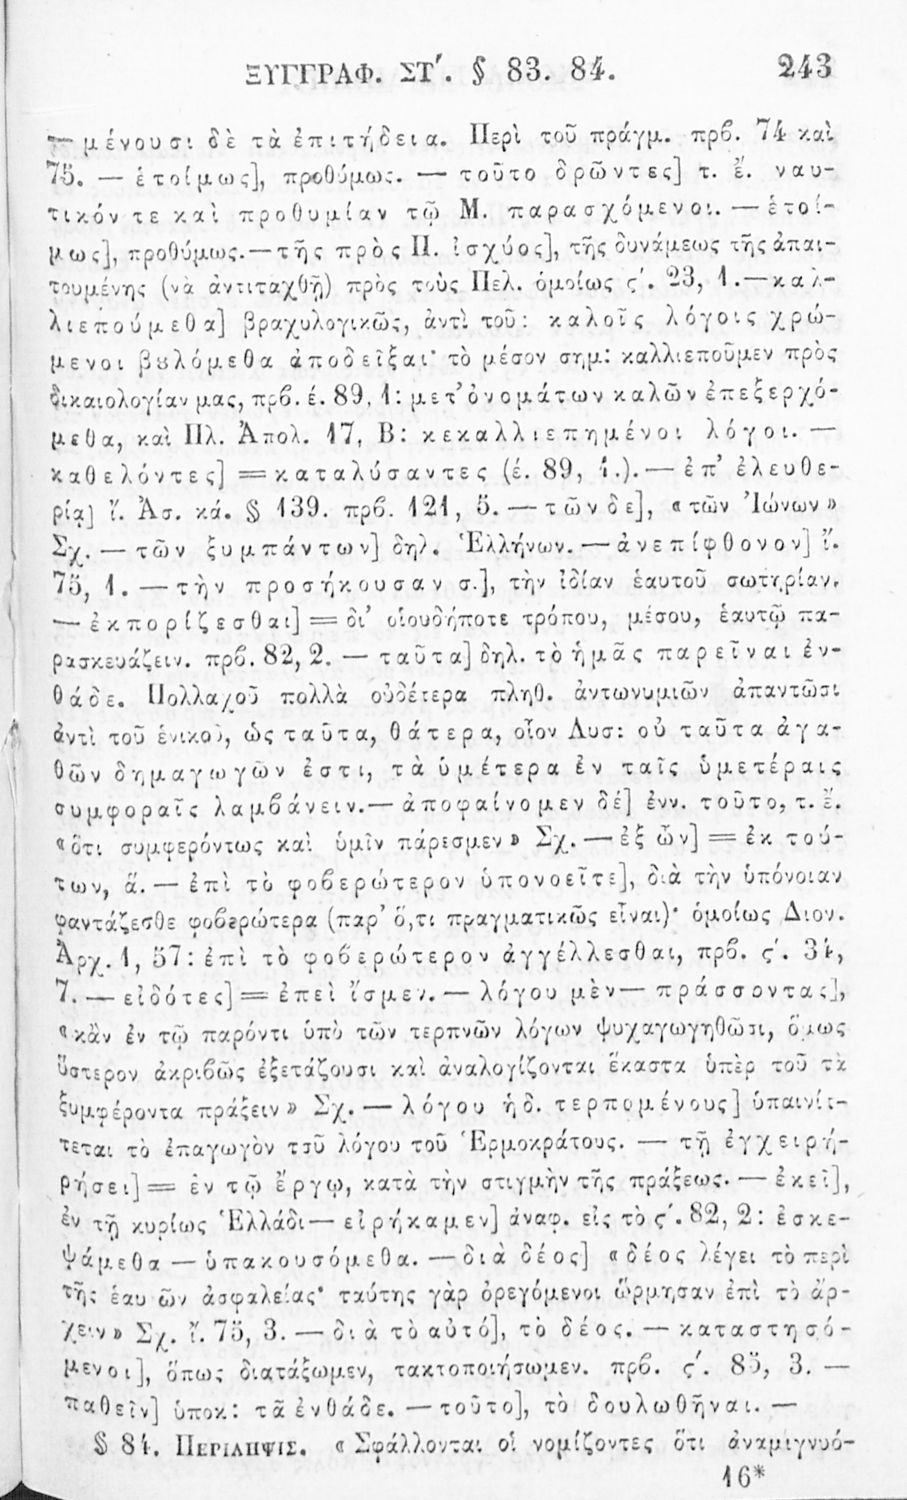 ΞΥΓΓΡΑΦ. ΣΤ΄. § 83. 84. 243
— μένουσι δὲ τὰ ἐπιτήδεια. Περὶ τοῦ πράγμ. πρϐ. 74 καὶ
75. — ἑτοίμως], προθύμως. — τοῦτο δρῶντες] τ. ἔ. ναυ-
τικόν τε καὶ προθυμίαν τῷ Μ. παρασχόμενοι. — ἑτοί-
μως], προθύμως.—τῆς πρὸς Π. ἰσχύος], τῆς δυνάμεως τῆς ἀπαι-
τουμένης (νὰ ἀντιταχθῇ) πρὸς τοὺς Πελ. ὁμοίως ϛ΄. 23, 1.—καλ-
λιεπούμεθα] βραχυλογικῶς, ἀντὶ τοῦ: καλοῖς λόγοις χρώ-
μενοι βȣλόμεθα ἀποδεῖξαι· τὸ μέσον σημ: καλλιεποῦμεν πρὸς
δικαιολογίαν μας, πρϐ. έ. 89, 1: μετ’ ὀνομάτων καλῶν ἐπεξερχό-
μεθα, καὶ Πλ. Ἀπολ. 17, Β: κεκαλλιεπημένοι λόγοι. —
καθελόντες] = καταλύσαντες (έ. 89, 1.).— ἐπ’ ἐλευθε-
ρίᾳ] ἴ. Ἀσ. κά. § 139. πρϐ. 121, 5. — τῶνδε], «τῶν Ἰώνων»
Σχ. — τῶν ξυμπάντων] δηλ. Ἑλλήνων. — ἀνεπίφθονον] ἴ.
75, 1. — τὴν προσήκουσαν σ.], τὴν ἰδίαν ἑαυτοῦ σωτηρίαν.
— ἐκπορίζεσθαι] = δι’ οἱουδήποτε τρόπου, μέσου, ἑαυτῷ πα-
ρασκευάζειν. πρϐ. 82, 2. — ταῦτα] δηλ. τὸ ἡμᾶς παρεῖναι ἐν-
θάδε. Πολλαχοῦ πολλὰ οὐδέτερα πληθ. ἀντωνυμιῶν ἀπαντῶσι
ἀντὶ τοῦ ἑνικοῦ, ὡς ταῦτα, θάτερα, οἷον Λυσ: οὐ ταῦτα ἀγα-
θῶν δημαγωγῶν ἐστι, τὰ ὑμέτερα ἐν ταῖς ὑμετέραις
συμφοραῖς λαμϐάνειν.— ἀποφαίνομεν δέ] ἐνν. τοῦτο, τ. ἔ.
«ὅτι συμφερόντως καὶ ὑμῖν πάρεσμεν» Σχ. — ἐξ ὧν] = ἐκ τού-
των, ἅ. — ἐπὶ τὸ φοϐερώτερον ὑπονοεῖτε], διὰ τὴν ὑπόνοιαν
φαντάζεσθε φοϐερώτερα (παρ’ ὅ,τι πραγματικῶς εἶναι)· ὁμοίως Διον.
Ἀρχ. 1, 57: ἐπὶ τὸ φοϐερώτερον ἀγγέλλεσθαι, πρϐ. ϛ΄. 34,
7. — εἰδότες] = ἐπεὶ ἴσμεν. — λόγου μὲν— πράσσοντας],
«κἂν ἐν τῷ παρόντι ὑπὸ τῶν τερπνῶν λόγων ψυχαγωγηθῶσι, ὅμως
ὕστερον ἀκριϐῶς ἐξετάζουσι καὶ ἀναλογίζονται ἕκαστα ὑπὲρ τοῦ τὰ
ξυμφέροντα πράξειν» Σχ. — λόγου ἡδ. τερπομένους] ὑπαινίτ-
τεται τὸ ἐπαγωγὸν τοῦ λόγου τοῦ Ἑρμοκράτους. — τῇ ἐγχειρή-
ρήσει] = ἐν τῷ ἔργῳ, κατὰ τὴν στιγμὴν τῆς πράξεως. — ἐκεῖ],
ἐν τῇ κυρίως Ἑλλάδι— εἰρήκαμεν] ἀναφ. εἰς τὸ ϛ΄. 82, 2: ἐσκε-
ψάμεθα — ὑπακουσόμεθα. — διὰ δέος] «δέος λέγει τὸ περὶ
τῆς ἑαυτῶν ἀσφαλείας· ταύτης γὰρ ὀρεγόμενοι ὥρμησαν ἐπὶ τὸ ἄρ-
χειν» Σχ. ἴ. 75, 3. — διὰ τὸ αὐτό], τὸ δέος. — καταστησό-
μενοι], ὅπως διατάξωμεν, τακτοποιήσωμεν. πρϐ. ϛ΄. 85, 3. —
παθεῖν] ὑποκ: τᾶ ἐνθάδε. — τοῦτο], τὸ δουλωθῆναι. —
§ 84. ΠΕΡΙΛΗΨΙΣ. «Σφάλλονται οἱ νομίζοντες ὅτι ἀναμιγνυό-
16*